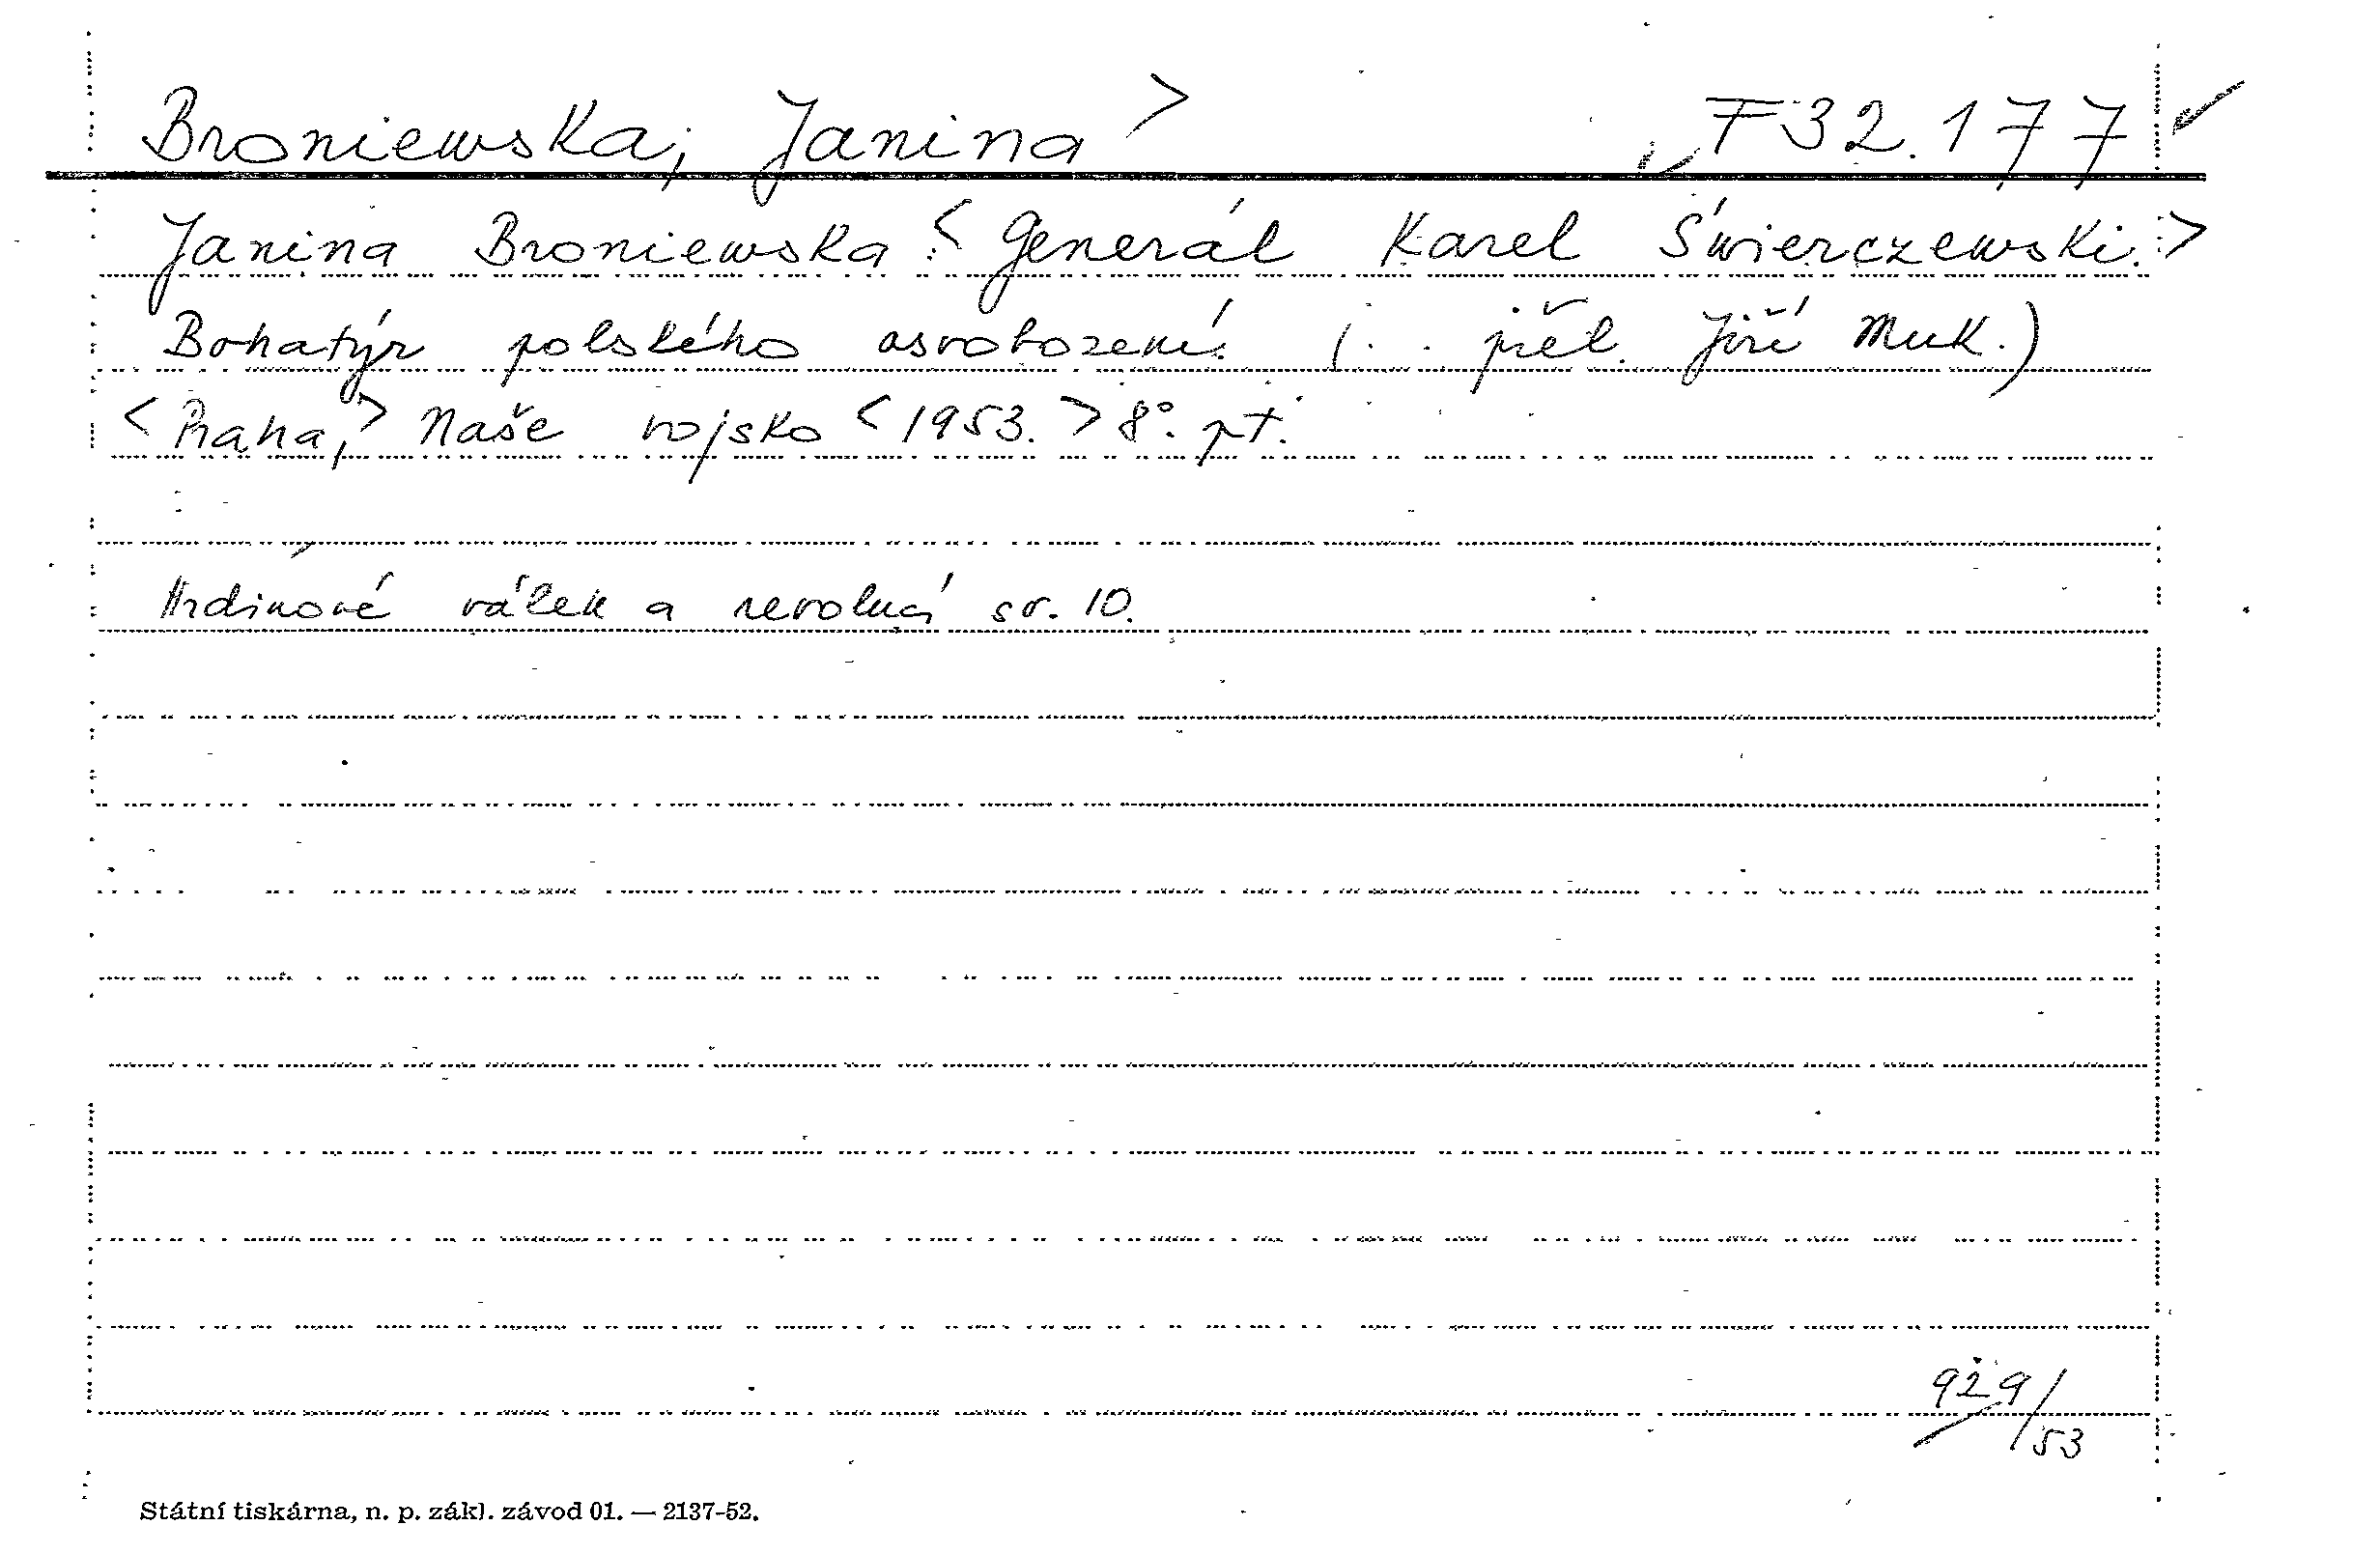 Broniewska, Janina > F 32.177 ✓
Janina Broniewska: < Generál Karel Świerczewski. >
Bohatýr polského osvobození. (. . přel. Jiří Muk.)
< Praha, > Naše vojsko < 1953. > 8°. pt.
Hrdinové válek a revolucí sv. 10.
929/53
Státní tiskárna, n. p. zákl. závod 01. — 2137-52.